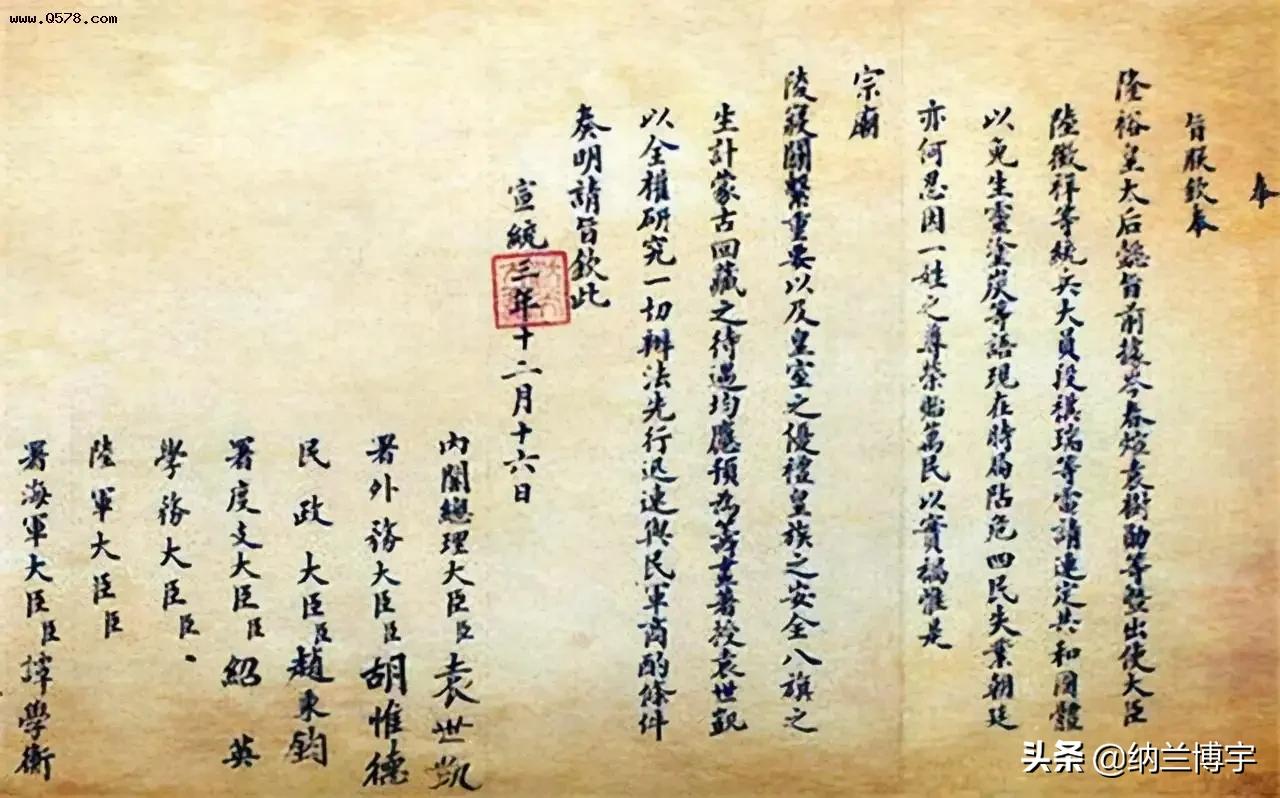 www.Q578.com
奉
旨朕欽奉
隆裕皇太后懿旨前據岑春煊袁樹勛等暨出使大臣
陸徵祥等統兵大員段祺瑞等電請速定共和國體
以免生靈塗炭等語現在時局阽危四民失業朝廷
亦何忍因一姓之尊榮貽萬民以實禍惟是
宗廟
陵寢關繫重要以及皇室之優禮皇族之安全八旗之
生計蒙古回藏之待遇均應預為籌畫著授袁世凱
以全權研究一切辦法先行迅速與民軍商酌條件
奏明請旨欽此
宣統三年十二月十六日
內閣總理大臣臣袁世凱
署外務大臣臣胡惟德
民政大臣臣趙秉鈞
署度支大臣臣紹英
學務大臣臣
陸軍大臣臣
署海軍大臣臣譚學衡
头条 @纳兰博宇